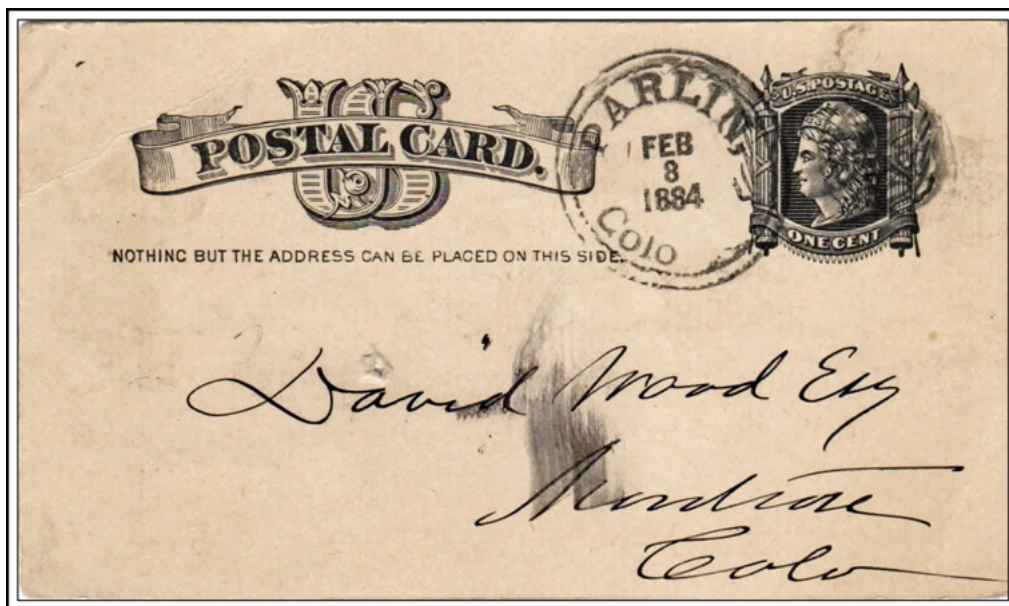 US
POSTAL CARD.
NOTHING BUT THE ADDRESS CAN BE PLACED ON THIS SIDE.
PARLIN,
FEB
8
1884
Colo
U.S. POSTAGE
ONE CENT
David Wood Esq
Montrose
Colo